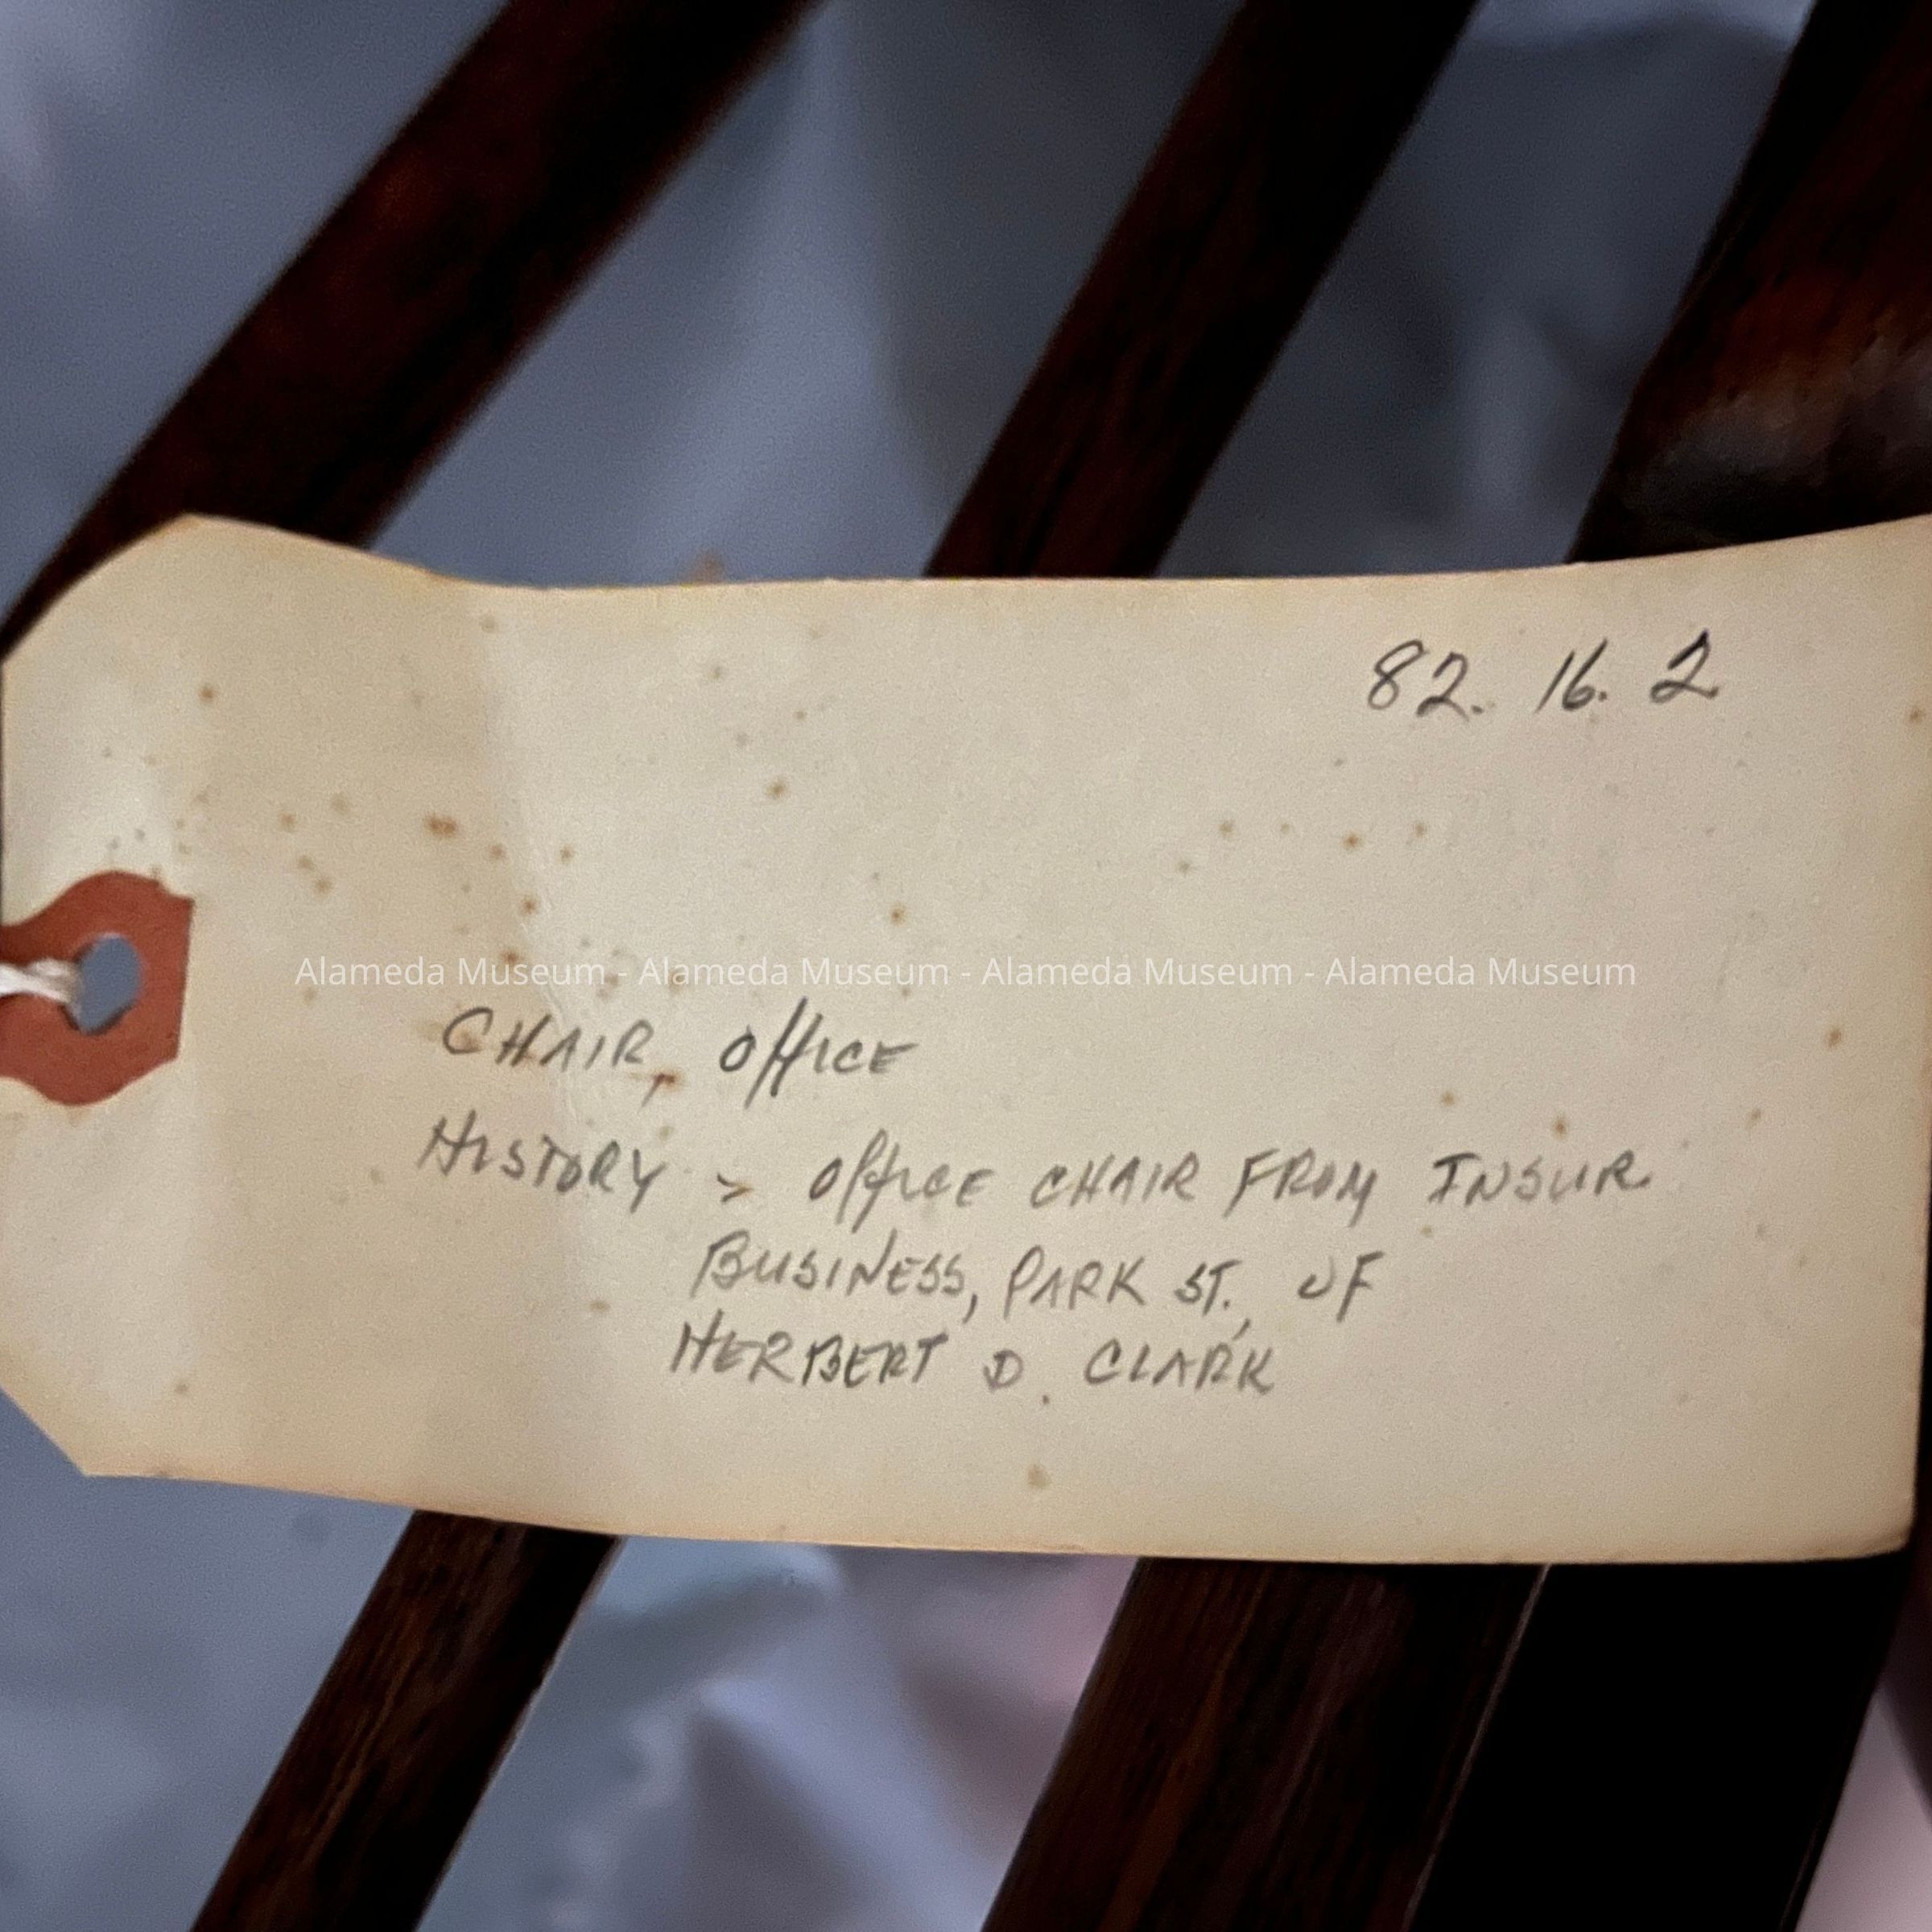 82. 16. 2
Alameda Museum - Alameda Museum - Alameda Museum - Alameda Museum
CHAIR, OFFICE
HISTORY > OFFICE CHAIR FROM INSUR.
BUSINESS, PARK ST., OF
HERBERT D. CLARK